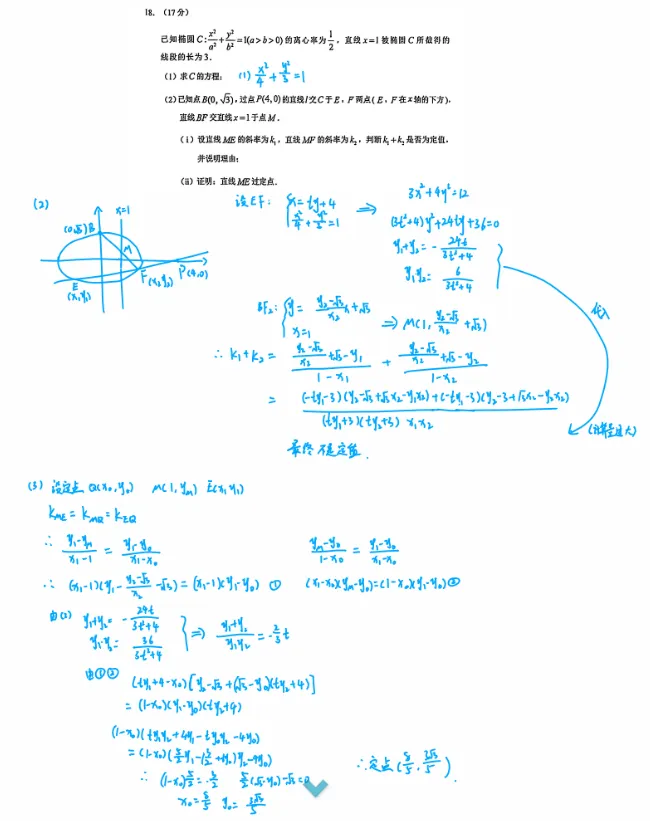 18. (17分)
已知椭圆 C: x²/a² + y²/b² = 1(a>b>0) 的离心率为 1/2, 直线 x=1 被椭圆 C 所截得的
线段的长为 3.
(1) 求 C 的方程; (1) x²/4 + y²/3 = 1
(2) 已知点 B(0, √3), 过点 P(4, 0) 的直线 l 交 C 于 E, F 两点( E, F 在 x 轴的下方),
直线 BF 交直线 x=1 于点 M.
(ⅰ) 设直线 ME 的斜率为 k₁, 直线 MF 的斜率为 k₂, 判断 k₁+k₂ 是否为定值,
并说明理由;
(ⅱ) 证明: 直线 ME 过定点.
(2)
x=1
(0,√3)B
M
E
(x₁,y₁)
F(x₂,y₂)
P(4,0)
设EF: { x=ty+4
x²/4+y²/3=1
⇒
3x²+4y²=12
(3t²+4)y²+24ty+36=0
y₁+y₂= - 24t/(3t²+4)
y₁y₂= 6/(3t²+4)
代入
BF: { y= (y₂-√3)/x₂ x+√3
x=1
⇒ M(1, (y₂-√3)/x₂ +√3)
∴ k₁+k₂ = ((y₂-√3)/x₂+√3-y₁)/(1-x₁) + ((y₂-√3)/x₂+√3-y₂)/(1-x₂)
= (-ty₁-3)(y₂-√3+√3x₂-y₁x₂)+(-ty₁-3)(y₂-3+√3x₂-y₂x₂) / (ty₁+3)(ty₂+3) x₁x₂
(计算量且大)
最终不是定值.
(3) 设定点 Q(x₀,y₀) M(1,yₘ) E(x₁,y₁)
kME = kMQ = kEQ
∴ (y₁-yₘ)/(x₁-1) = (y₁-y₀)/(x₁-x₀)
(yₘ-y₀)/(1-x₀) = (y₁-y₀)/(x₁-x₀)
∴ (x₁-1)(y₁-(y₂-√3)/x₂-√3) = (x₁-1)(y₁-y₀) ①
(x₁-x₀)(yₘ-y₀)=(1-x₀)(y₁-y₀) ②
由(2) y₁+y₂= - 24t/(3t²+4)
y₁·y₂= 36/(3t²+4)
} ⇒ (y₁+y₂)/(y₁y₂) = -2/3 t
由①②
(ty₁+4-x₀)[y₂-√3+(√3-y₀)(ty₂+4)]
= (1-x₀)(y₁-y₀)(ty₂+4)
(1-x₀)(ty₁y₂+4y₁-ty₀y₂-4y₀)
∴ 定点(8/5, 3√3/5).
x₀=8/5 y₀=3√3/5